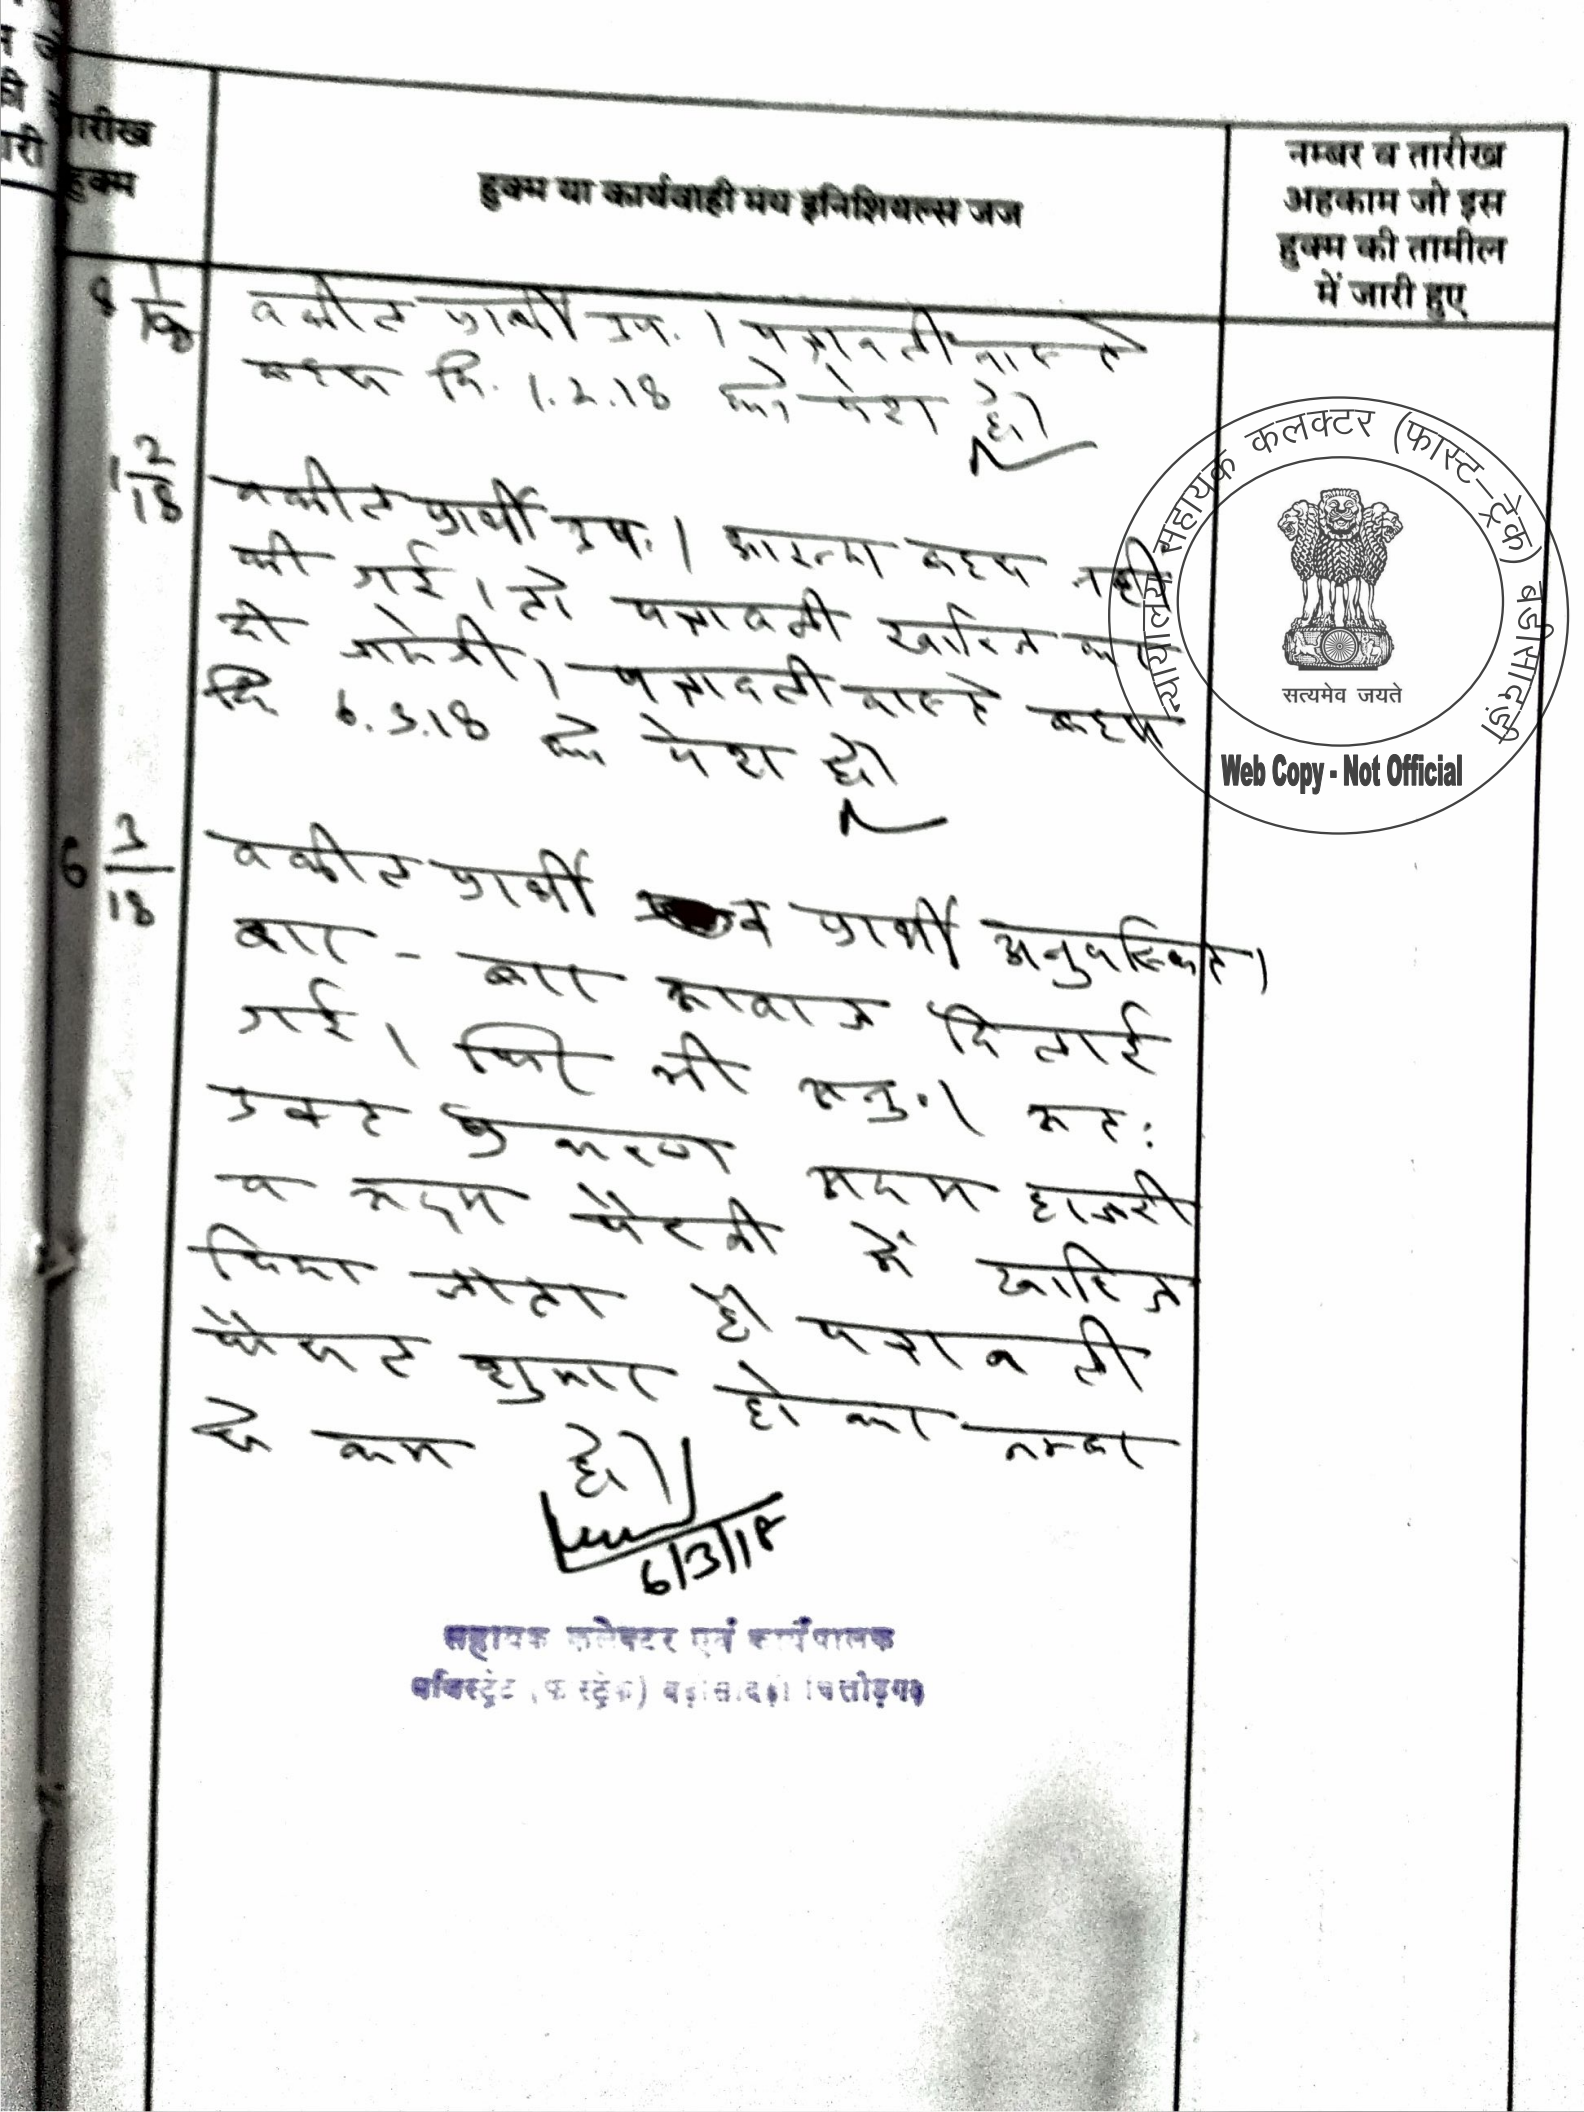 तारीख
हुक्म
हुक्म या कार्यवाही मय इनिशियल्स जज
नम्बर व तारीख
अहकाम जो इस
हुक्म की तामील
में जारी हुए
8 1/18
वकील प्रार्थी उप. । पत्रावली वास्ते
बहस दि. 1.2.18 को पेश हो।
1 2/18
वकील प्रार्थी उप. । बहस नहीं
की गई। तो पत्रावली खारिज कर
दी जायेगी। पत्रावली वास्ते बहस
दि 6.3.18 को पेश हो।
6 3/18
वकील प्रार्थी व प्रार्थी अनुपस्थित।
बार - बार आवाज दिलाई
गई। फिर भी अनु.। अतः
उक्त प्रकरण अदम हाजरी
व अदम पैरवी में खारिज
किया जाता है। पत्रावली
फैसल शुमार होकर नम्बर
से कम हो।
6/3/18
सहायक कलेक्टर एवं कार्यपालक
मजिस्ट्रेट (फा.स्ट्रेक) बड़ीसादड़ी चित्तोड़गढ़
न्यायालय सहायक कलक्टर (फास्ट-ट्रेक) बडीसादड़ी
सत्यमेव जयते
Web Copy - Not Official